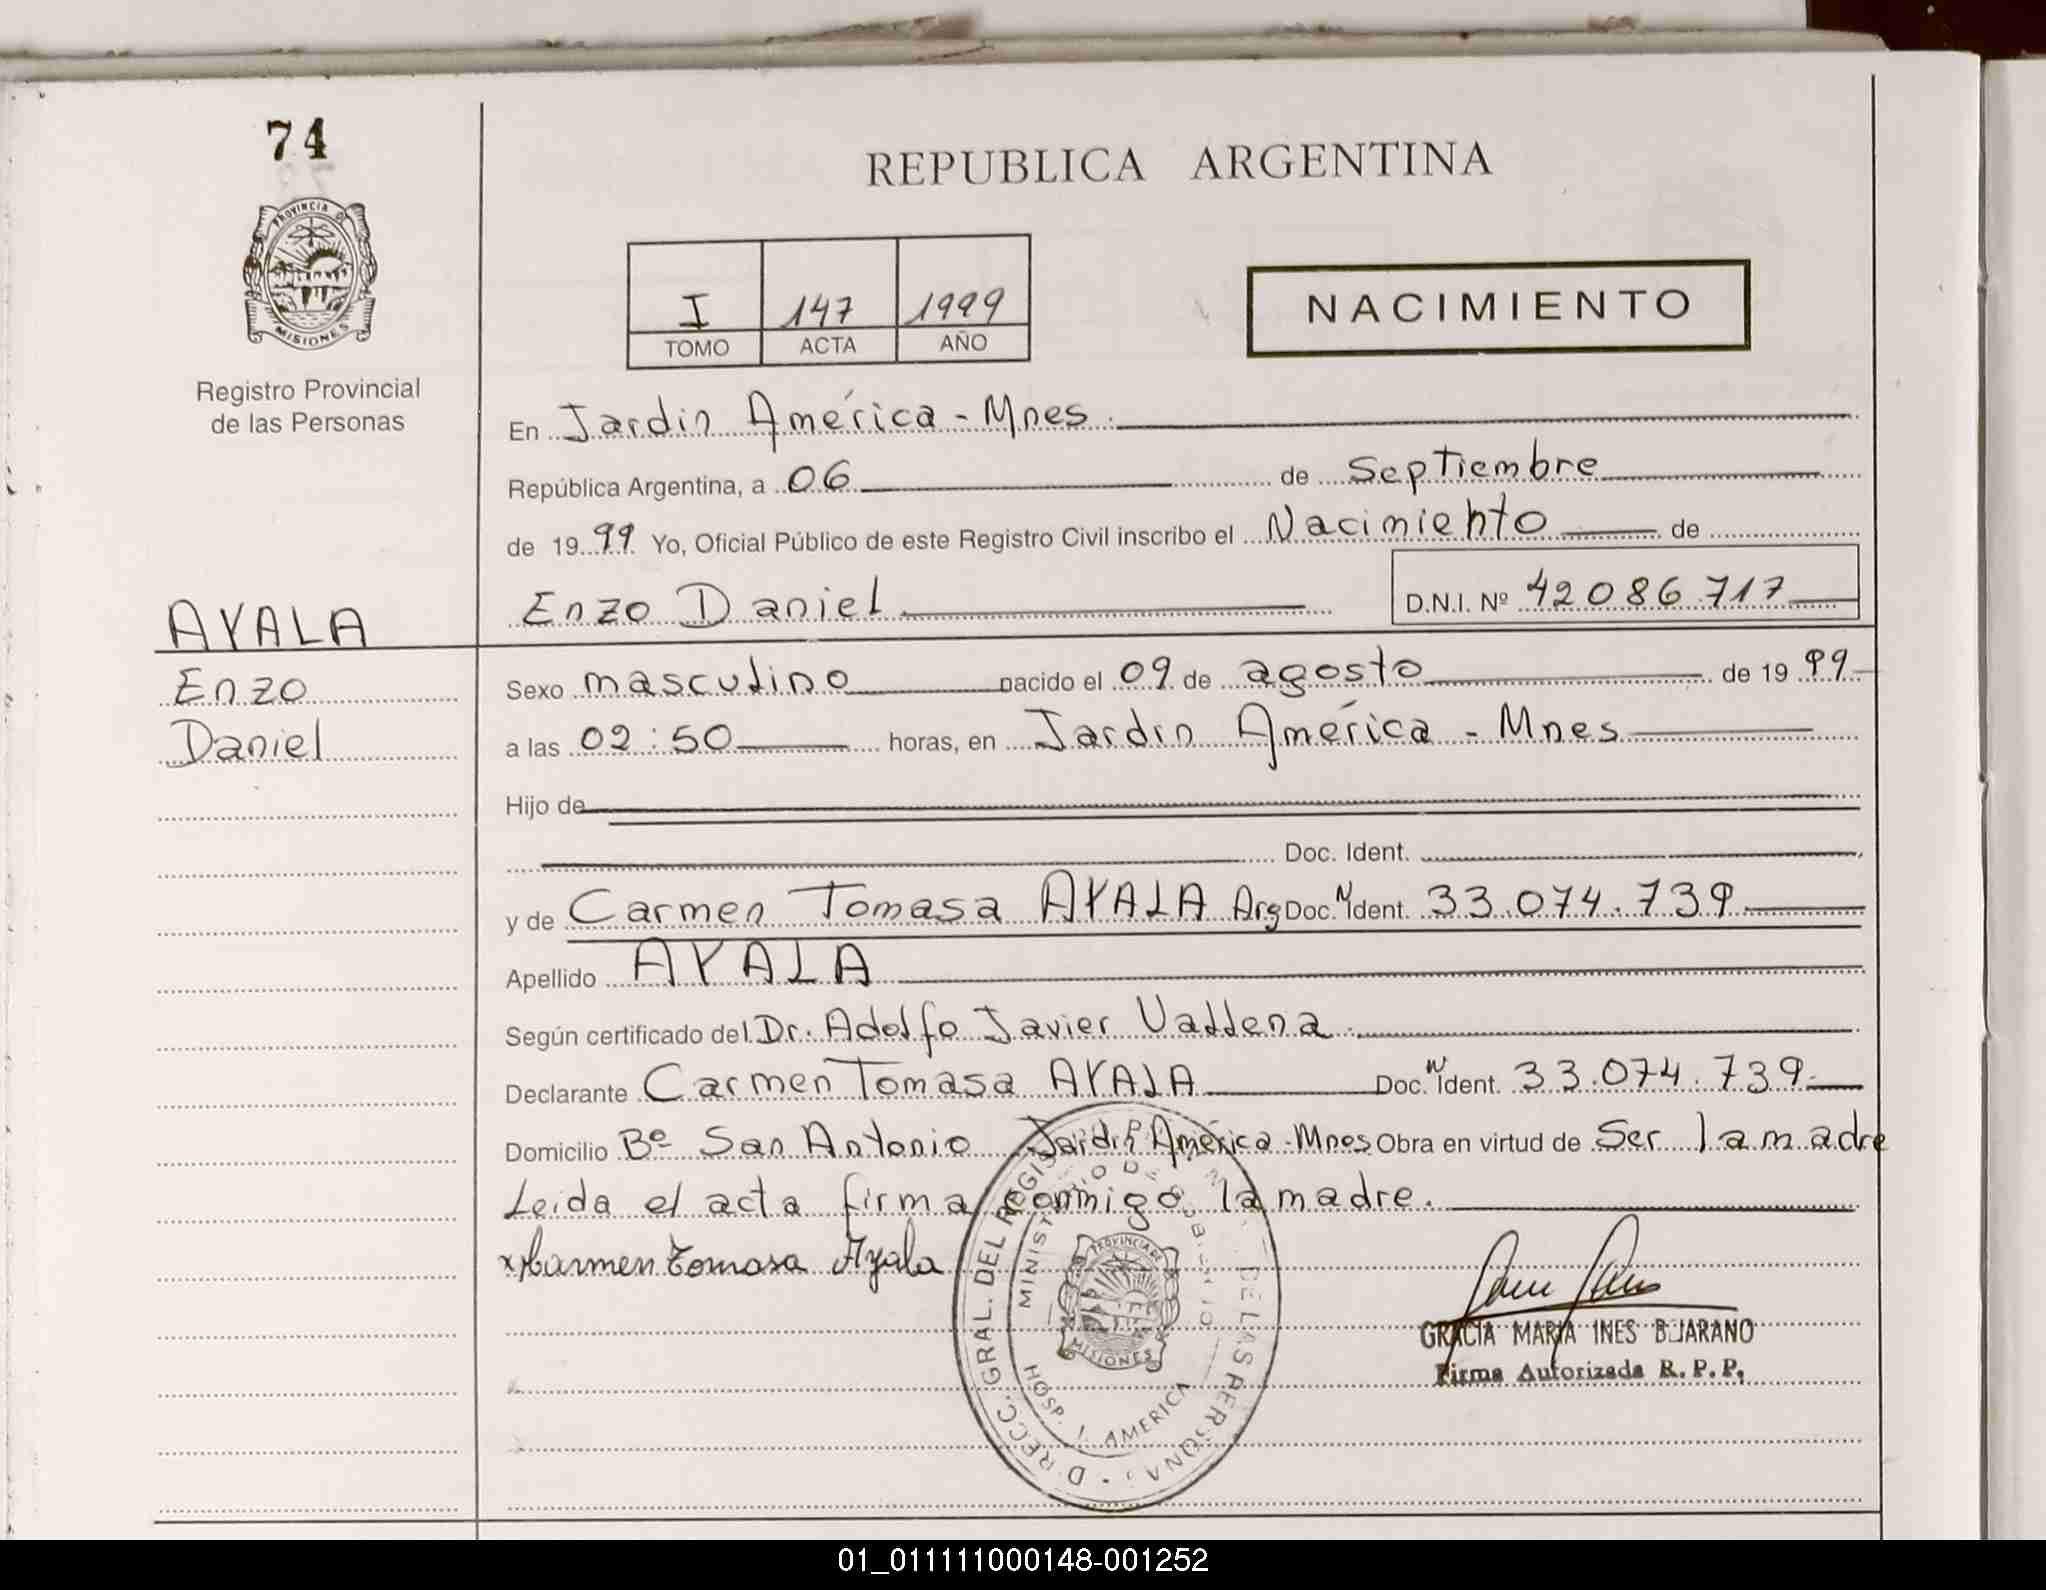 74
PROVINCIA DE
MISIONES
Registro Provincial
de las Personas
REPUBLICA ARGENTINA
I 147 1999
TOMO ACTA AÑO
NACIMIENTO
En Jardin América - Mnes.
República Argentina, a 06 de Septiembre
de 1999 Yo, Oficial Público de este Registro Civil inscribo el Nacimiento de
Enzo Daniel D.N.I. Nº 42086717
AYALA
Enzo
Daniel
Sexo masculino nacido el 09 de agosto de 1999
a las 02:50 horas, en Jardin América - Mnes
Hijo de
Doc. Ident.
y de Carmen Tomasa AYALA Arg Doc. N Ident. 33.074.739
Apellido AYALA
Según certificado del Dr. Adolfo Javier Vallena.
Declarante Carmen Tomasa AYALA Doc. N Ident. 33.074.739
Domicilio Bº San Antonio Jardin América - Mnes Obra en virtud de Ser la madre
Leida el acta firma conmigo la madre.
x Carmen Tomasa Ayala
GRACIA MARIA INES BEJARANO
Firma Autorizada R. P. P.
DIRECC. GRAL. DEL REGISTRO DE LAS PERSONAS
MINISTERIO DE GOBIERNO
HOSP. J. AMERICA
PROVINCIA DE
MISIONES
01_011111000148-001252